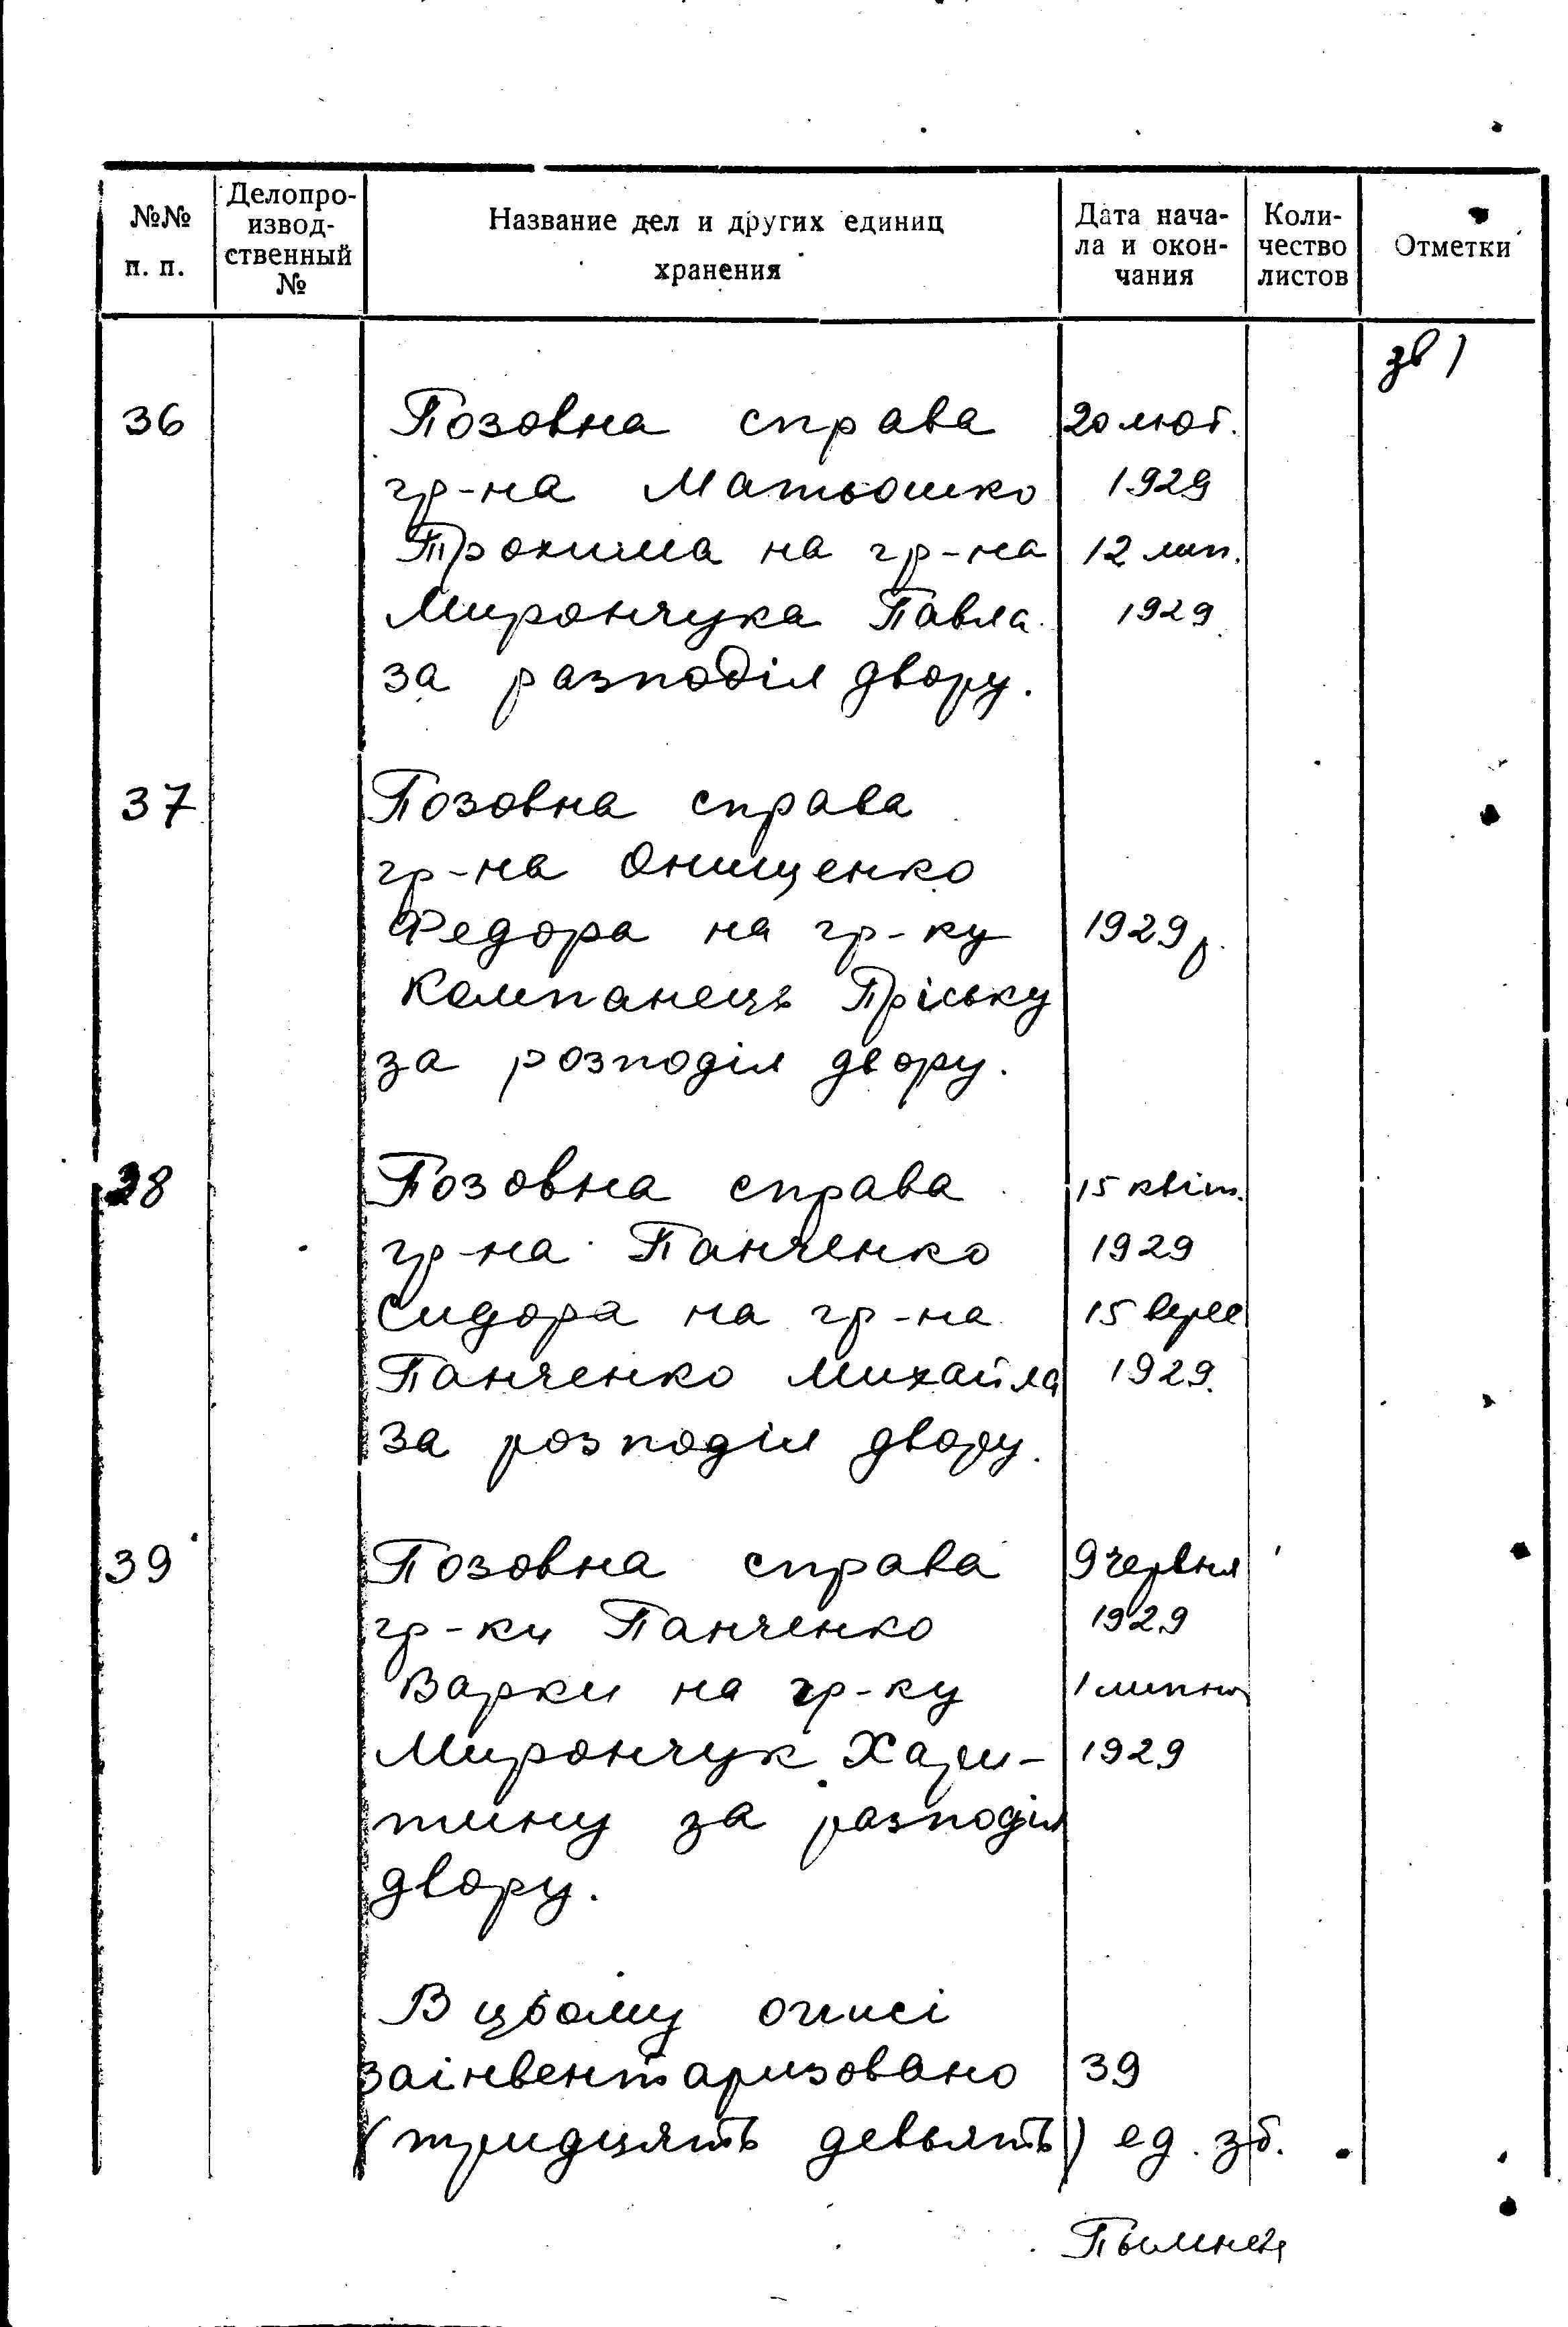 №№ п. п.
Делопро-
извод-
ственный
№
Название дел и других единиц
хранения
Дата нача-
ла и окон-
чания
Коли-
чество
листов
Отметки
36 Позовна справа 20 лют.
гр-на Матьошко 1929
Трохима на гр-на 12 лип.
Мирончука Павла 1929
за разподіл двору.
37 Позовна справа
гр-на Онищенко
Федора на гр-ку 1929 р.
Компанець Пріську
за розподіл двору.
38 Позовна справа 15 квіт.
гр-на Панченко 1929
Сидора на гр-на 15 верес
Панченко Михайла 1929.
За розподіл двору.
39 Позовна справа 9 червня
гр-ки Панченко 1929
Варки на гр-ку 1 липня
Мирончук Хари- 1929
тину за разподіл
двору.
В цьому описі
заінвентаризовано 39
(тридцять девьять) ед. зб.